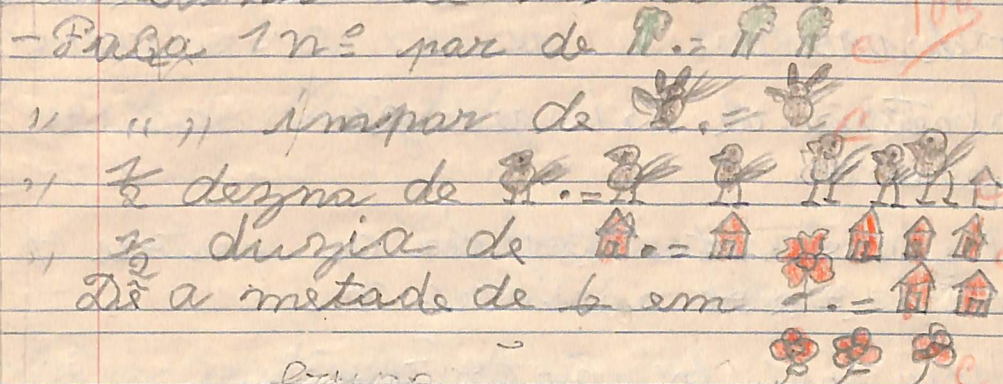 - Faça 1 nº par de .=
" " " impar de .=
" 1/2 dezna de .=
" 1/2 duzia de .=
Dê a metade de 6 em .=